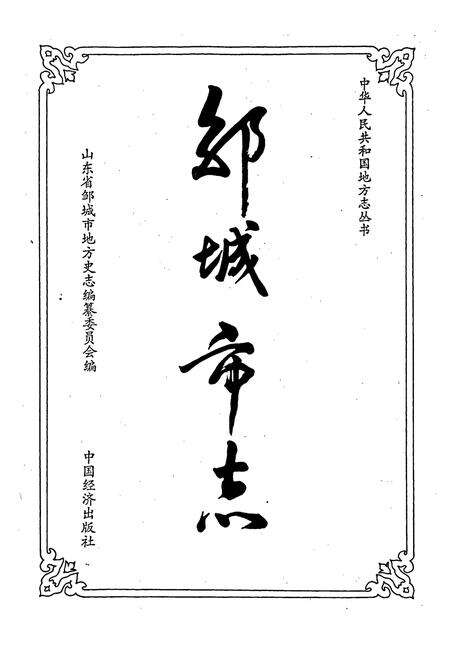 中华人民共和国地方志丛书
邹城市志
山东省邹城市地方史志编纂委员会编
中国经济出版社